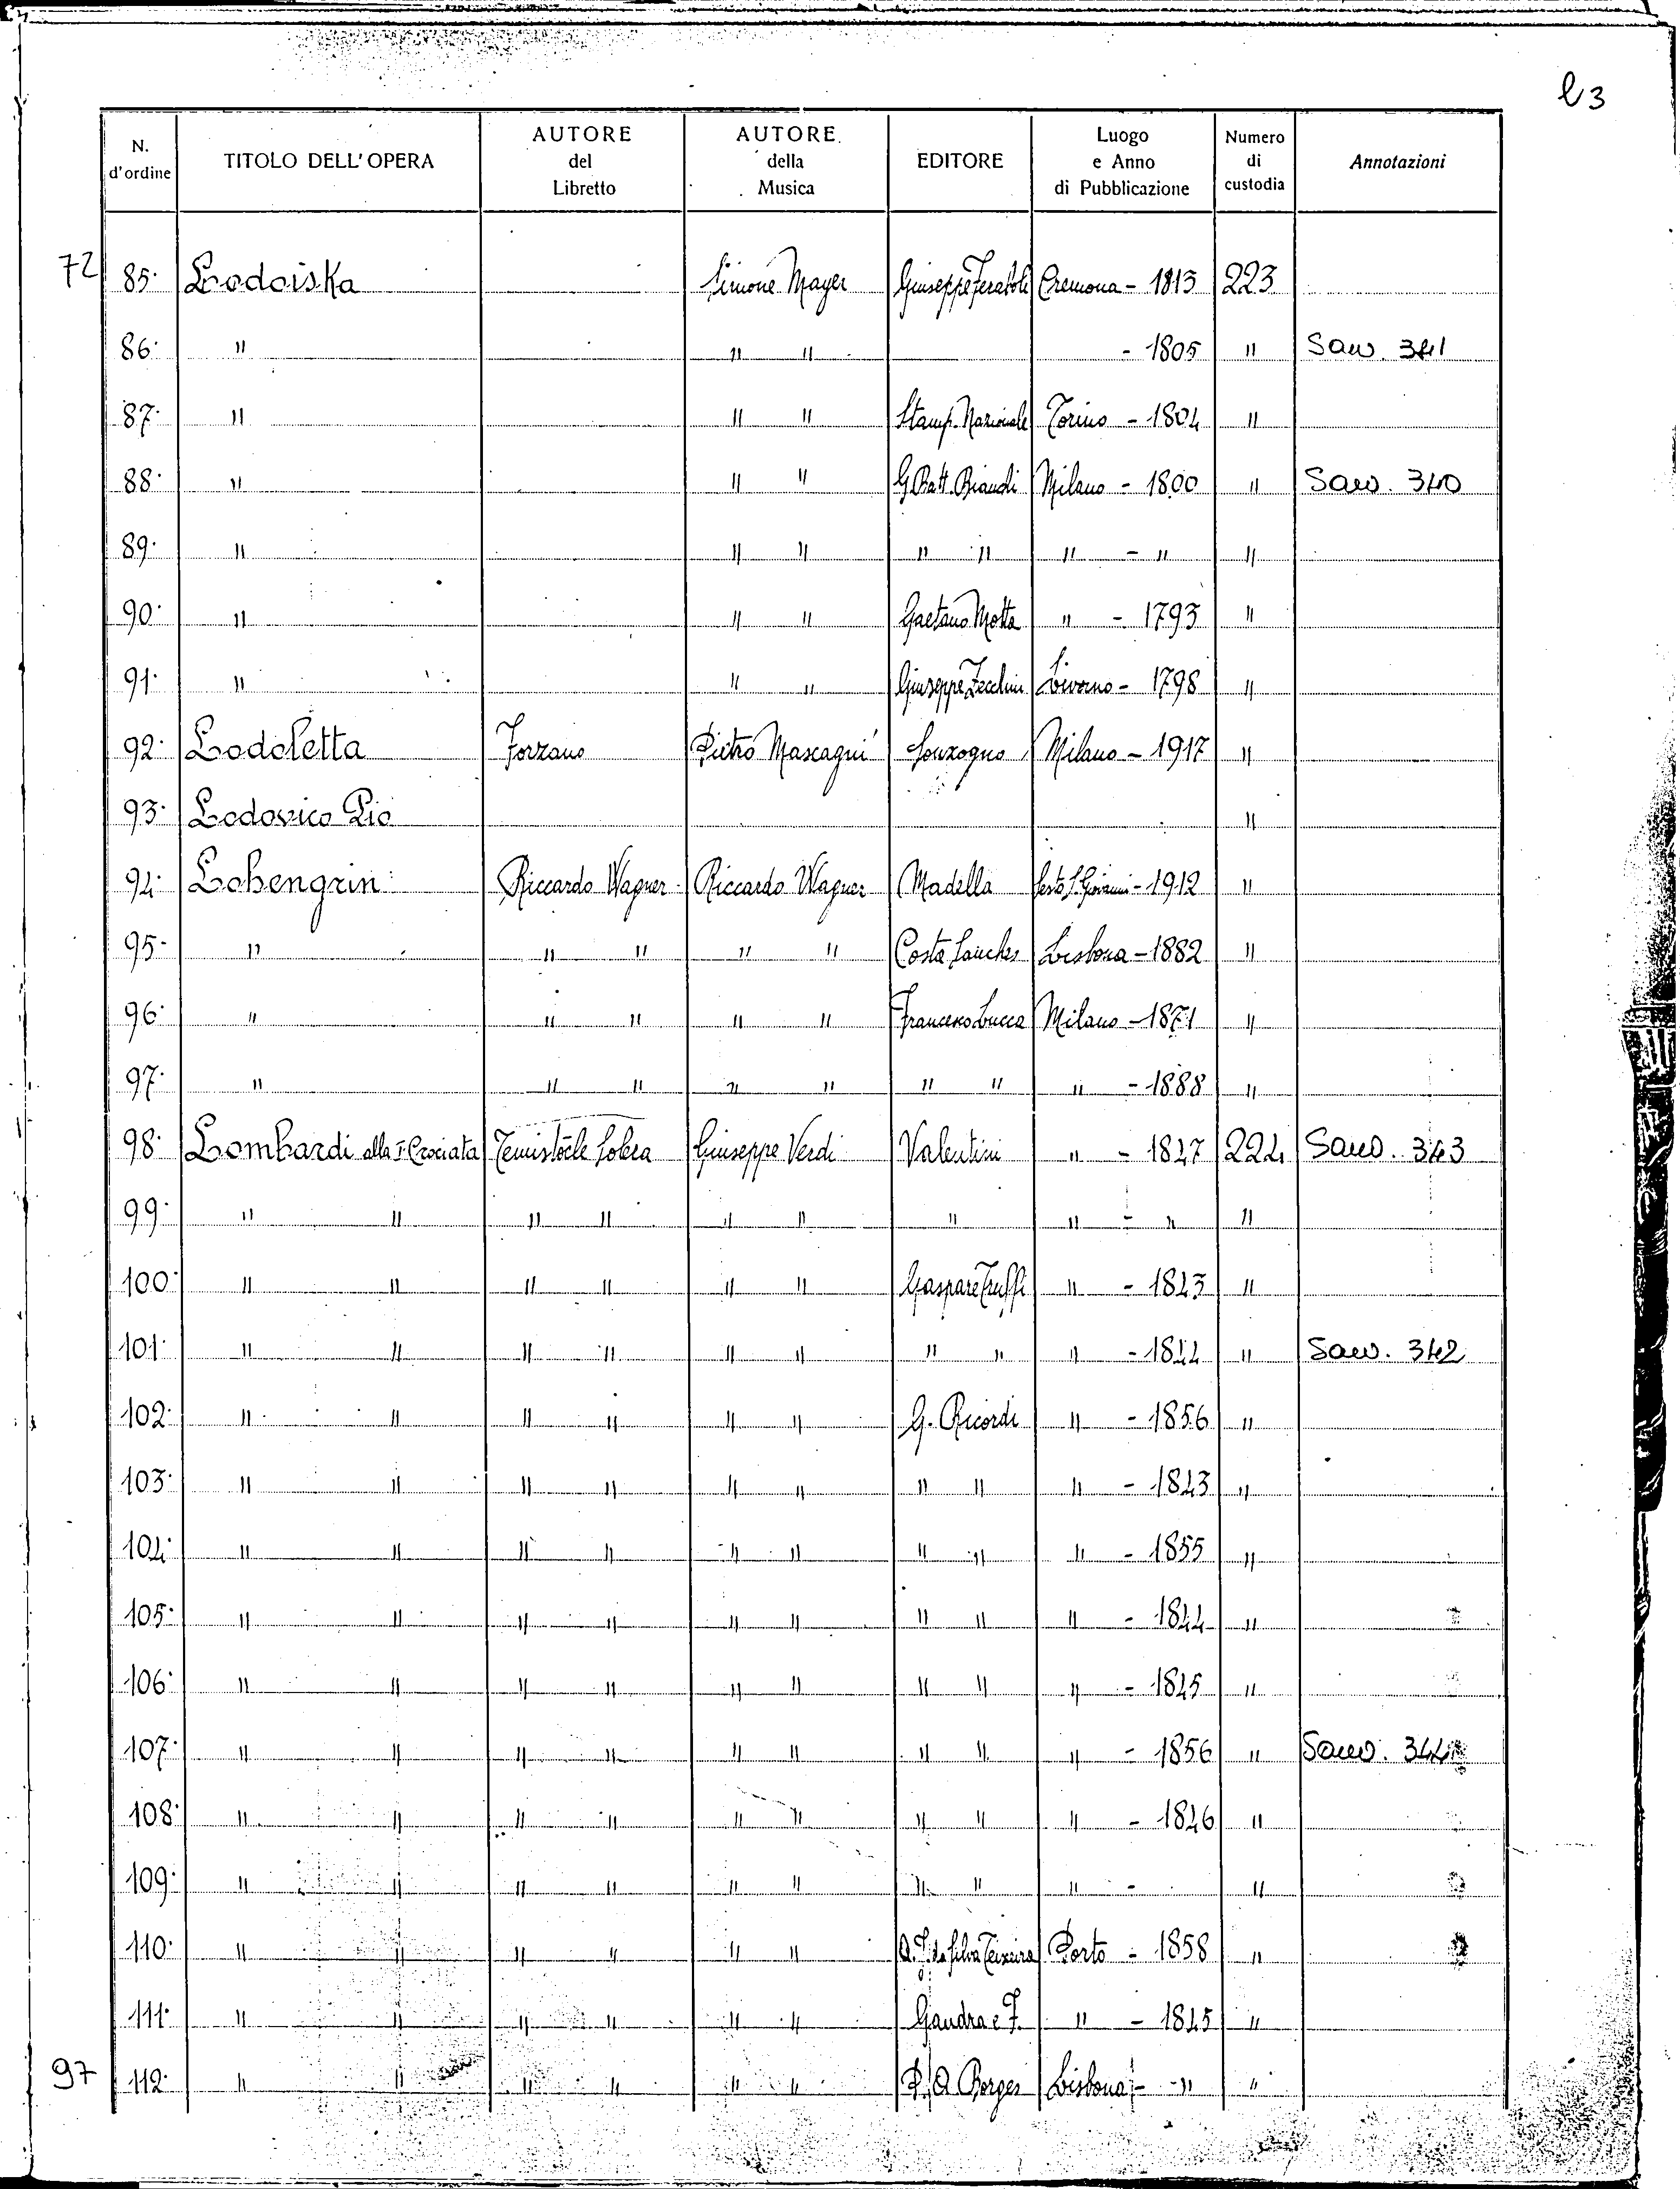 l3
N. d'ordine TITOLO DELL'OPERA AUTORE del Libretto AUTORE della Musica EDITORE Luogo e Anno di Pubblicazione Numero di custodia Annotazioni
72 85. Lodoiska Simone Mayer Giuseppe Feraboli Cremona - 1813 223
86. " " " - 1805 " Saw. 341
87. " " " Stamp. Nazionale Torino - 1804 "
88. " " " G. Batt. Bianchi Milano - 1800 " Saw. 340
89. " " " " " " - " "
90. " " " Gaetano Motta " - 1793 "
91. " " " Giuseppe Zecchini Livorno - 1798 "
92. Lodoletta Forzano Pietro Mascagni Sonzogno Milano - 1917 "
93. Lodovico Pio "
94. Lohengrin Riccardo Wagner Riccardo Wagner Madella Sesto S. Giovanni - 1912 "
95. " " " " " Costa Sanches Lisbona - 1882 "
96. " " " " " Francesco Lucca Milano - 1871 "
97. " " " " " " " " - 1888 "
98. Lombardi alla Iª Crociata Temistocle Solera Giuseppe Verdi Valentini " - 1847 224 Saw. 343
99. " " " " " " " " - " "
100. " " " " " " Gaspare Truffi " - 1843 "
101. " " " " " " " " " - 1844 " Saw. 342
102. " " " " " " G. Ricordi " - 1856 "
103. " " " " " " " " " - 1843 "
104. " " " " " " " " " - 1855 "
105. " " " " " " " " " - 1844 "
106. " " " " " " " " " - 1845 "
107. " " " " " " " " " - 1856 " Saw. 344
108. " " " " " " " " " - 1846 "
109. " " " " " " " " " - "
110. " " " " " " da Silva Teixeira Porto - 1858 "
111. " " " " " " Gandra e F. " - 1845 "
97 112. " " " " " " P. A. Borges Lisbona - " "